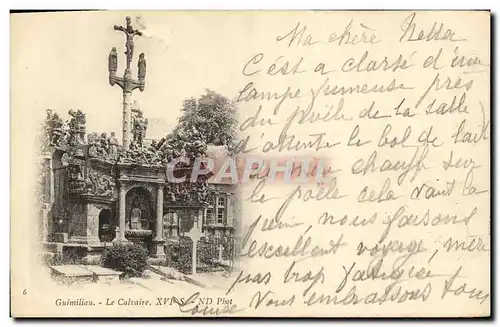 Ma chère Netta
C'est a clarté d'une
lampe fumeuse près
du poële de la salle
d'attente le bol de lait
chaud chauffe sur
le poële cela vaut la
peine, nous faisons
excellent voyage, mère
pas trop fatiguée
Nous vous embrassons tous
Louise
CPARAMA
6
Guimiliau. - Le Calvaire, XVIe S. - ND Phot